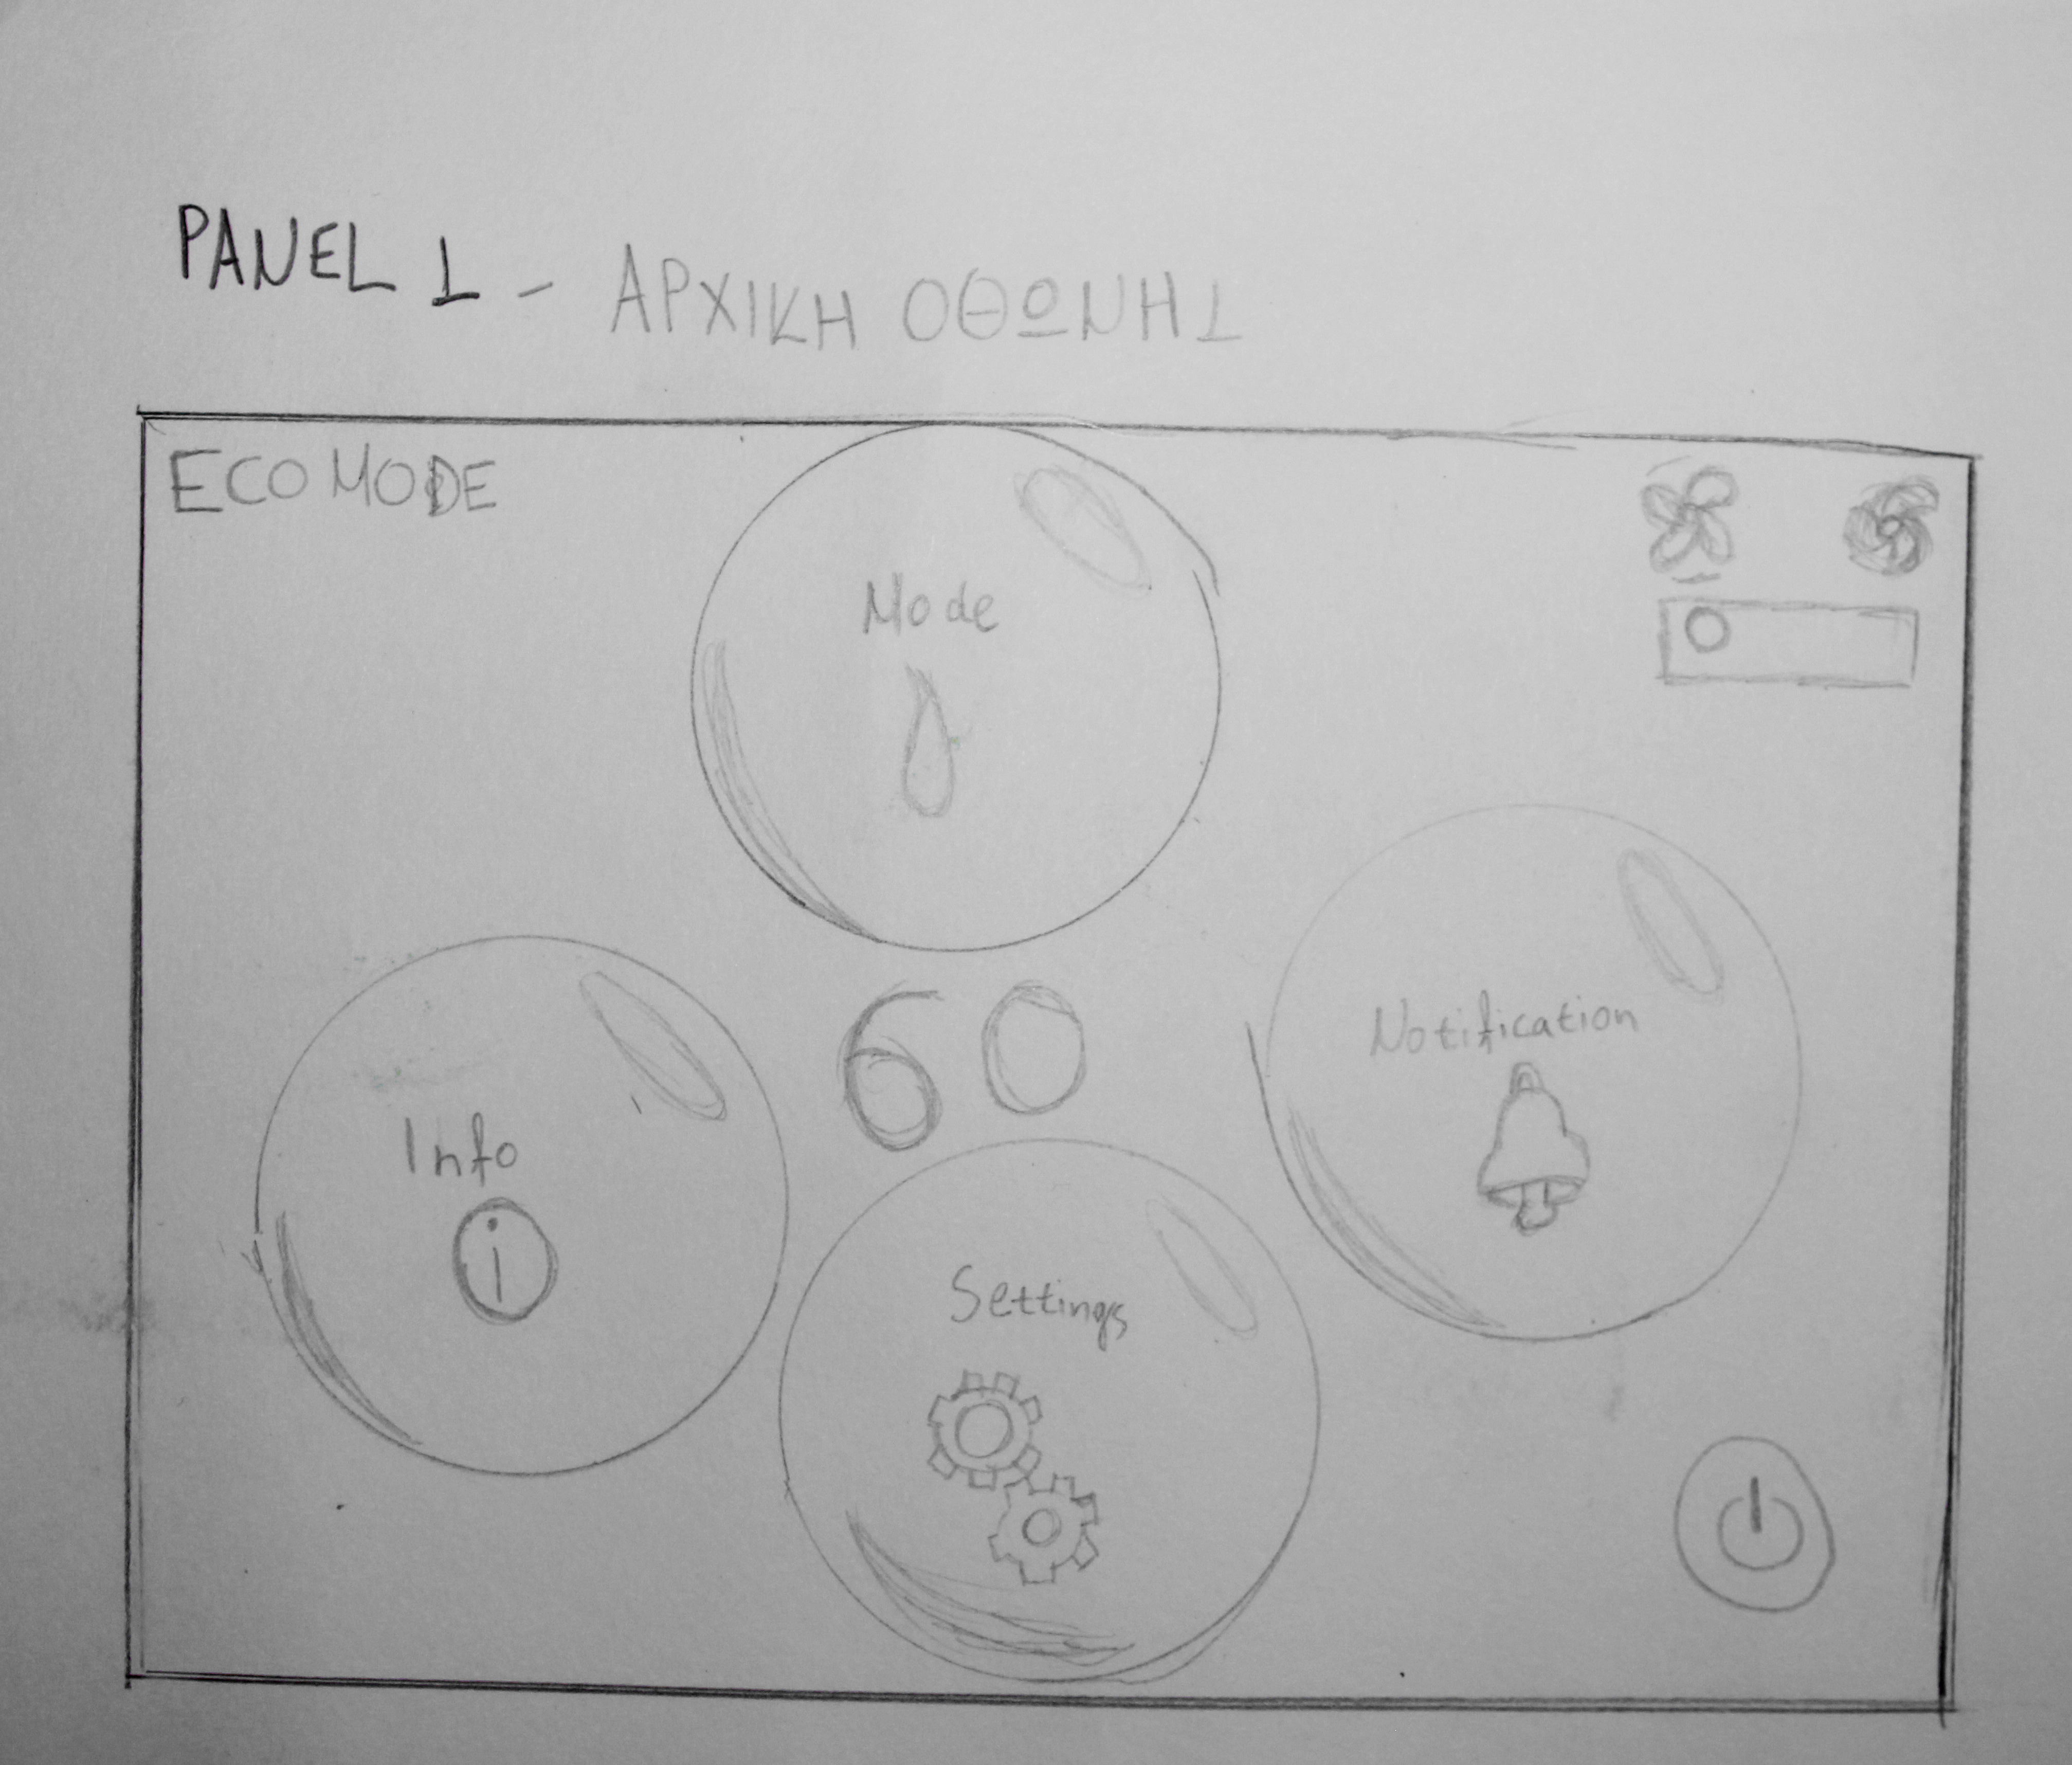 PANEL 1 - ΑΡΧΙΚΗ ΟΘΩΝΗ 1
ECO MODE
Mode
60
Notification
Info
i
Settings